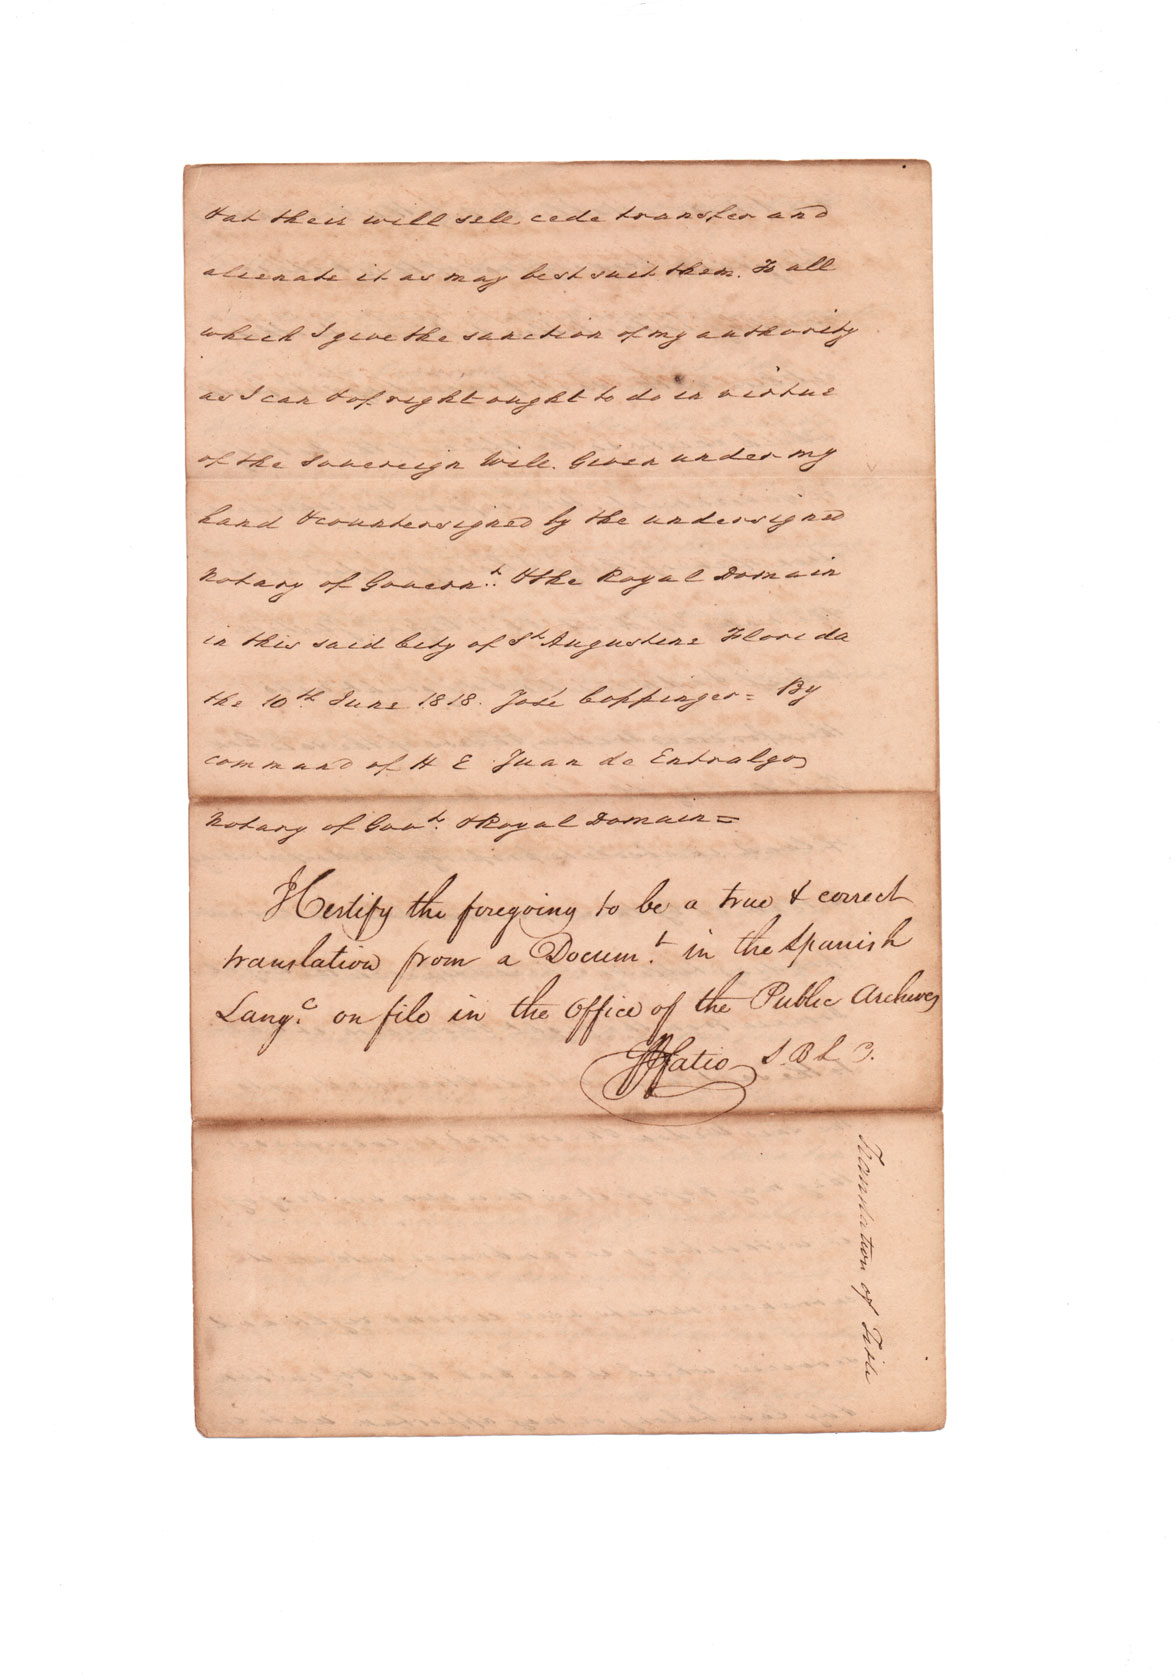 & at their will sell, cede transfer and
alienate it as may best suit them. To all
which I give the sanction of my authority
as I can & of right ought to do in virtue
of the Sovereign Will. Given under my
hand & countersigned by the undersigned
Notary of Governt. & the Royal Domain
in this said City of St Augustine Florida
the 10th June 1818. José Coppinger = By
command of H E Juan de Entralgo
Notary of Govt. & Royal Domain =
I Certify the foregoing to be a true & correct
translation from a Documt. in the Spanish
Lange. on file in the Office of the Public Archives
Fatio S. B L C.
Translation of Title